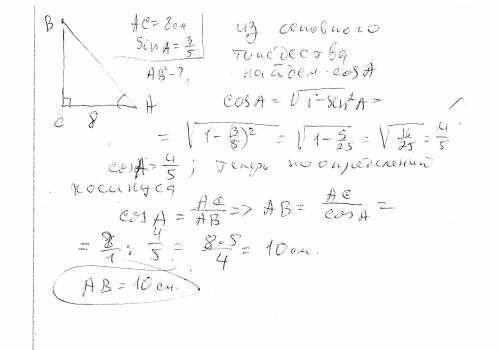 B
AC = 8 см
Sin A = 3/5
AB - ?
C 8 A
из основного
тождества
найдем cos A
cos A = √(1² - sin² A) =
= √(1 - (3/5)²) = √(1 - 9/25) = √(16/25) = 4/5
cos A = 4/5 ; теперь по определений
косинуса
cos A = AC/AB => AB = AC/cos A =
= 8/1 : 4/5 = 8·5/4 = 10 см.
AB = 10 см.